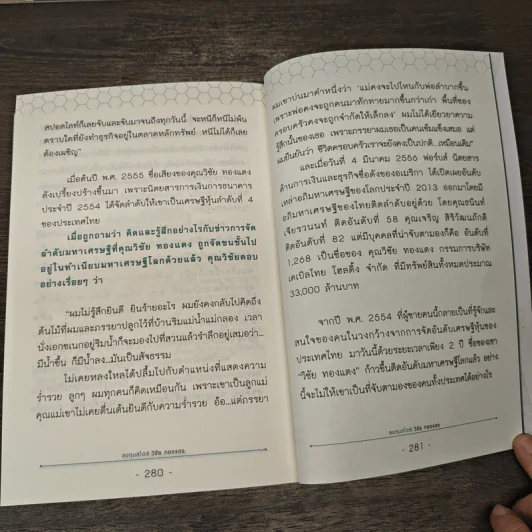 สปอตไลท์ก็เลยจับและจับมาจนถึงทุกวันนี้ จะหนีก็หนีไม่พ้น
ตราบใดที่ยังทำธุรกิจอยู่ในตลาดหลักทรัพย์ หนีไม่ได้ก็เลย
ต้องเผชิญ”
เมื่อต้นปี พ.ศ. 2555 ชื่อเสียงของคุณวิชัย ทองแตง
ดังเปรี้ยงปร้างขึ้นมา เพราะนิตยสารการเงินการธนาคาร
ประจำปี 2554 ได้จัดลำดับให้เขาเป็นเศรษฐีหุ้นลำดับที่ 4
ของประเทศไทย
เมื่อถูกถามว่า คิดและรู้สึกอย่างไรกับข่าวการจัด
ลำดับมหาเศรษฐีที่คุณวิชัย ทองแตง ถูกจัดขยับขึ้นไป
อยู่ในทำเนียบมหาเศรษฐีโลกด้วยแล้ว คุณวิชัยตอบ
อย่างเรื่อยๆ ว่า
“ผมไม่รู้สึกยินดี ยินร้ายอะไร ผมยังคงกลับไปคิดถึง
ต้นไม้ที่ผมและภรรยาปลูกไว้ที่บ้านริมแม่น้ำแม่กลอง เวลา
นั่งเอกเขนกอยู่ริมน้ำก็จะมองไปที่สวนแล้วรำลึกอยู่เสมอว่า...
มีน้ำขึ้น ก็มีน้ำลง...มันเป็นสัจธรรม
ไม่เคยหลงใหลได้ปลื้มไปกับตำแหน่งที่แสดงความ
ร่ำรวย ลูกๆ ผมทุกคนก็คิดเหมือนกัน เพราะเขาเป็นลูกแม่
คุณแม่เขาไม่เคยตื่นเต้นยินดีกับความร่ำรวย อ้อ...แต่ภรรยา
ลงทุนสไตล์ วิชัย ทองแตง
- 280 -
ผมเขาบ่นมาคำหนึ่งว่า ‘แม่คงจะไปไหนกับพ่อลำบากขึ้น
เพราะพ่อคงจะถูกคนมาทักทายมากขึ้นกว่าเก่า พื้นที่ของ
ครอบครัวคงจะถูกจำกัดให้เล็กลง’ ผมไม่ได้เยียวยาความ
รู้สึกนั้นของเธอ เพราะภรรยาผมเธอเป็นคนเข้มแข็งเสมอ แต่
ผมยืนยันว่า ชีวิตครอบครัวเราจะยังคงเป็นปกติ...เหมือนเดิม”
และเมื่อวันที่ 4 มีนาคม 2556 ฟอร์บส์ นิตยสาร
ด้านการเงินและธุรกิจชื่อดังของอเมริกา ได้เปิดเผยอันดับ
เหล่าอภิมหาเศรษฐีของโลกประจำปี 2013 ออกมาโดยมี
อภิมหาเศรษฐีของไทยติดลำดับอยู่ด้วย โดยคุณธนินท์
เจียรวนนท์ ติดอันดับที่ 58 คุณเจริญ สิริวัฒนภักดี
ติดอันดับที่ 82 แต่มีบุคคลที่น่าจับตามองก็คือ อันดับที่
1,268 เป็นชื่อของ คุณวิชัย ทองแตง กรรมการบริษัท
เคเบิลไทย โฮลดิ้ง จำกัด ที่มีทรัพย์สินทั้งหมดประมาณ
33,000 ล้านบาท
จากปี พ.ศ. 2554 ที่ผู้ชายคนนี้กลายเป็นที่รู้จักและ
สนใจของคนในวงกว้างจากการจัดอันดับเศรษฐีหุ้นของ
ประเทศไทย มาวันนี้ด้วยระยะเวลาเพียง 2 ปี ชื่อของเขา
“วิชัย ทองแตง” ก้าวขึ้นติดอันดับมหาเศรษฐีโลกแล้ว อย่าง
นี้จะไม่ให้เขาเป็นที่จับตามองของคนทั้งประเทศได้อย่างไร
ลงทุนสไตล์ วิชัย ทองแตง
- 281 -